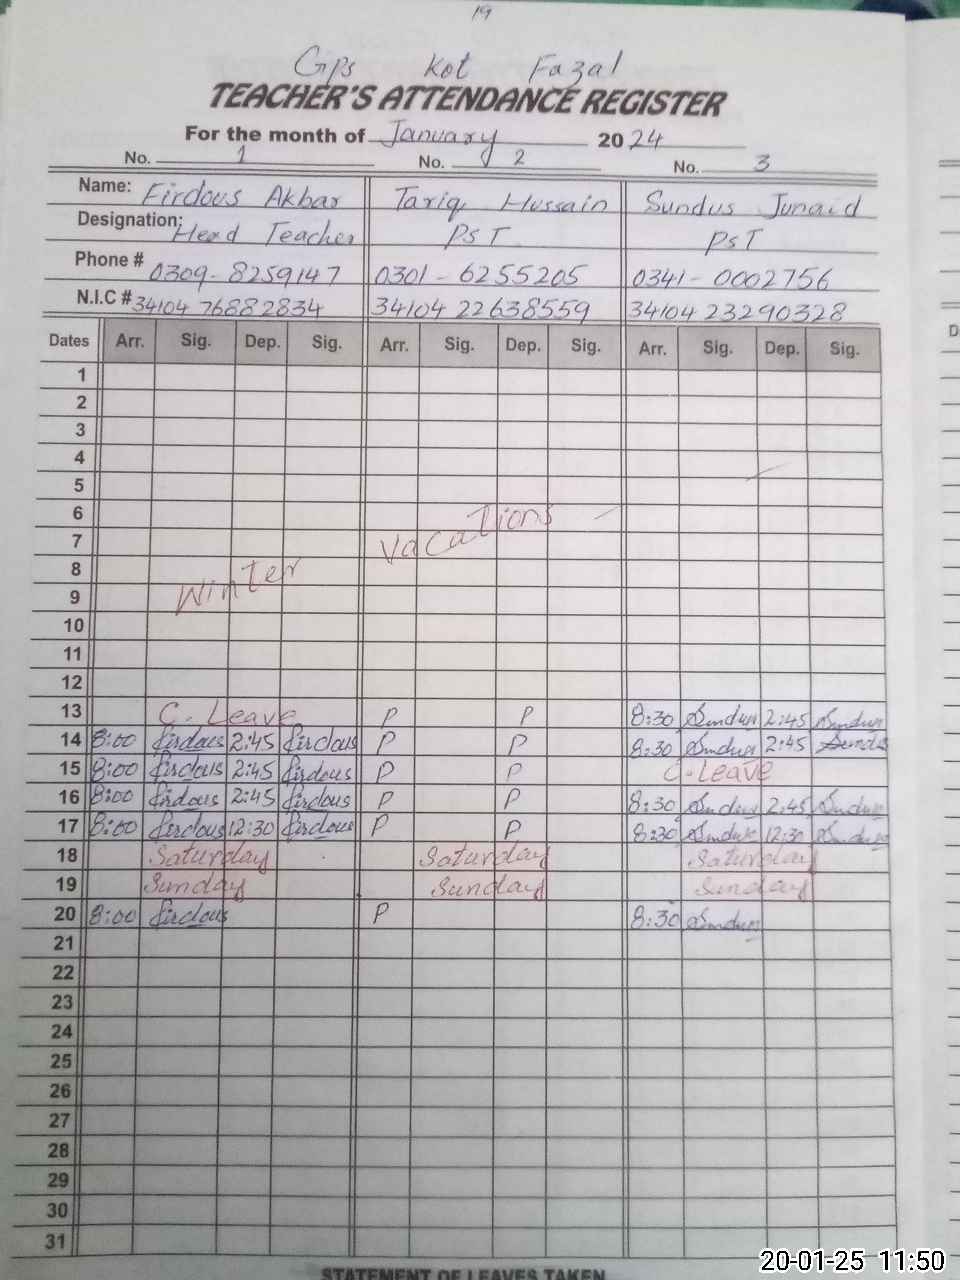 19
Gps Kot Fazal
TEACHER'S ATTENDANCE REGISTER
For the month of January 2024
No. 1 No. 2 No. 3
Name: Firdous Akbar Tariq Hussain Sundus Junaid
Designation: Head Teacher PST PST
Phone # 0309-8259147 0301-6255205 0341-0002756
N.I.C # 34104 76882834 34104 22638559 34104 23290328
Dates Arr. Sig. Dep. Sig. Arr. Sig. Dep. Sig. Arr. Sig. Dep. Sig.
1
2
3
4
5
6
7
8
9
Winter Vacations
10
11
12
13 C. Leave P P 8:30 Sundus 2:45 Sundus
14 8:00 firdous 2:45 firdous P P 8:30 Sundus 2:45 Sundus
15 8:00 firdous 2:45 firdous P P C. Leave
16 8:00 firdous 2:45 firdous P P 8:30 Sundus 2:45 Sundus
17 8:00 firdous 12:30 firdous P P 8:30 Sundus 12:30 Sundus
18 Saturday Saturday Saturday
19 Sunday Sunday Sunday
20 8:00 firdous P 8:30 Sundus
21
22
23
24
25
26
27
28
29
30
31
STATEMENT OF LEAVES TAKEN
20-01-25 11:50